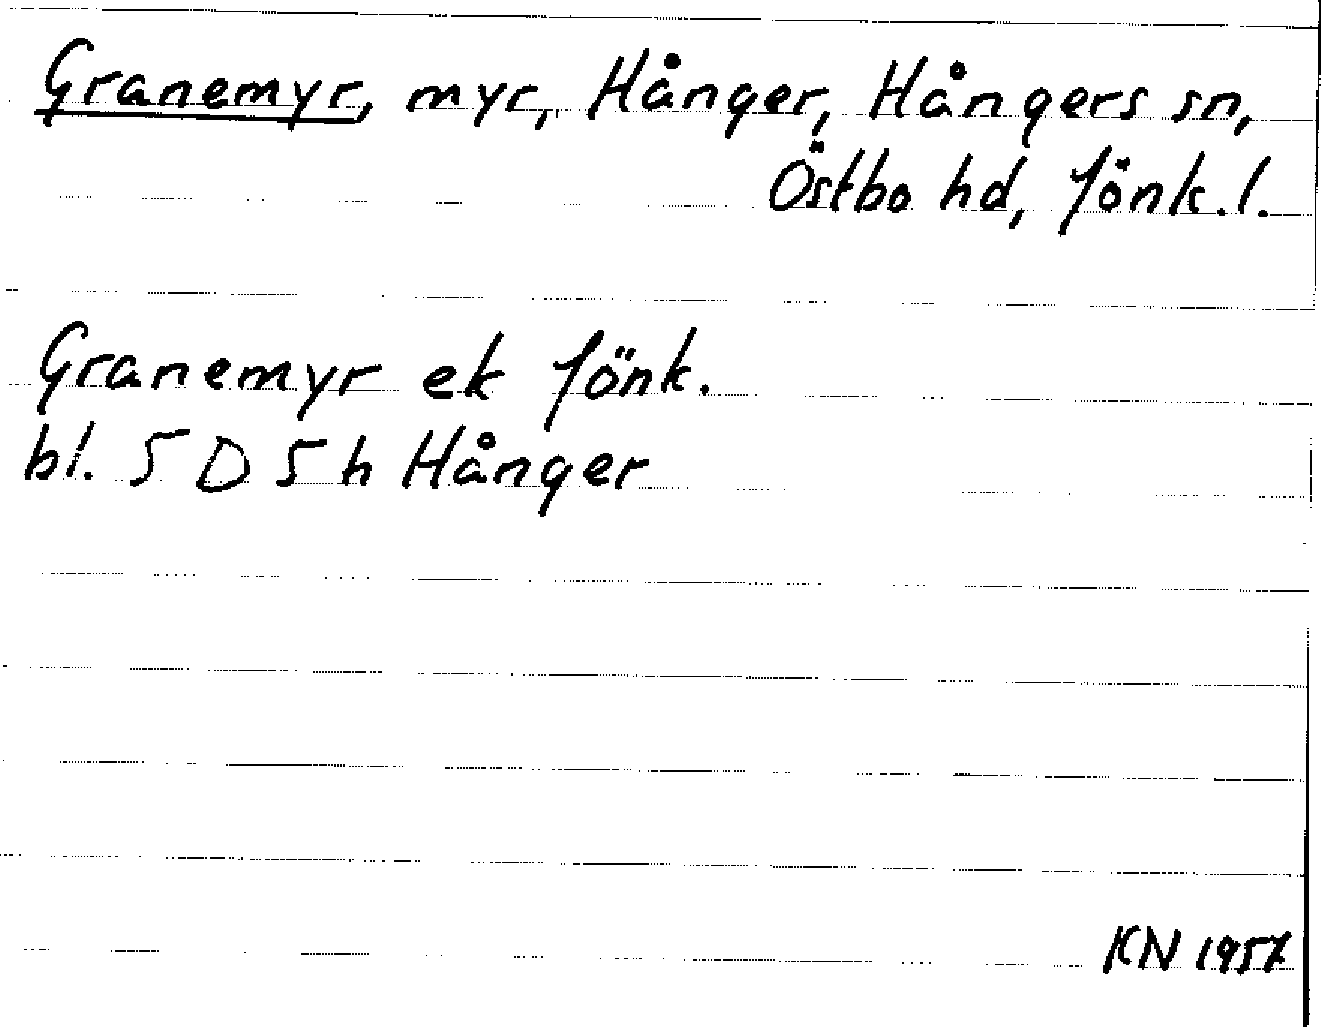 Granemyr, myr, Hånger, Hångers sn,
Östbo hd, Jönk.l.
Granemyr ek Jönk.
bl. 5 D 5 h Hånger
KN 1957